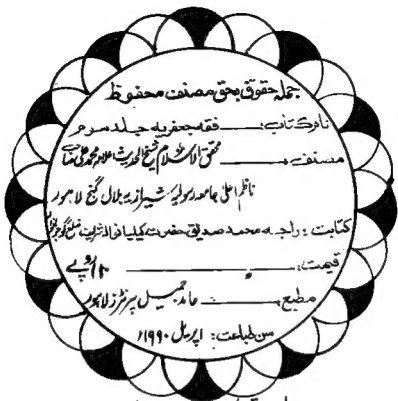 جملہ حقوق بحق مصنف محفوظ
نام کتاب: فقہ جعفریہ جلد سوم
مصنف: محقق الاسلام شیخ الحدیث علامہ محمد علی صاحب
ناظم اعلیٰ جامعہ رسولیہ شیرازیہ بلال گنج لاہور
کتابت: راجہ محمد صدیق حضرت کیلیانوالہ شریف ضلع
قیمت: روپے
مطبع: حامد جمیل پرنٹرز لاہور
سن طباعت: اپریل ۱۹۹۰ء